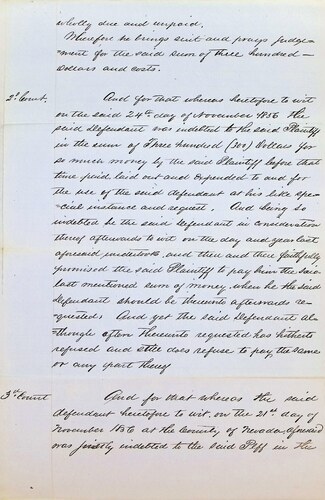 wholly due and unpaid.
Wherefore he brings suit and prays judge-
ment for the said sum of three hundred
dollars and costs.
2d Count. And for that whereas heretofore to wit
on the said 24th day of November 1856 the
said Defendant was indebted to the said Plaintiff
in the sum of Three hundred (300) Dollars for
so much money by the said Plaintiff before that
time paid, laid out and expended to and for
the use of the said defendant at his like spe-
cial instance and request. And being so
indebted he the said Defendant in consideration
thereof afterwards to wit on the day and year last
aforesaid undertook, and then and there faithfully
promised the said Plaintiff to pay him the said
last mentioned sum of money, when he the said
Defendant should be thereunto afterwards re-
quested; And yet the said Defendant al-
though often thereunto requested has hitherto
refused and still does refuse to pay the same
or any part thereof
3d Count And for that whereas the said
defendant heretofore to wit, on the 21st day of
November 1856 at the County of Nevada aforesaid
was justly indebted to the said Plff in the